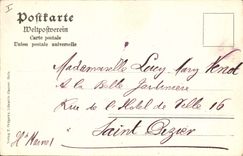 Postkarte
Weltpostverein
Carte postale
Union postale universelle
Mademoiselle Lucy Mary Venot
A la Belle Jardinière
Rue de l'Hotel de Ville 16
Saint Dizier
Hte Marne